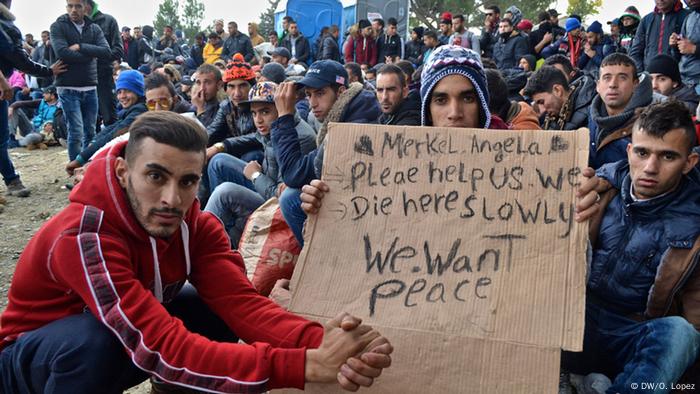 MerKeL Angela
PLeae heLp us. we
Die here sLowLy
We.Want
peace
SP
© DW/O. Lopez